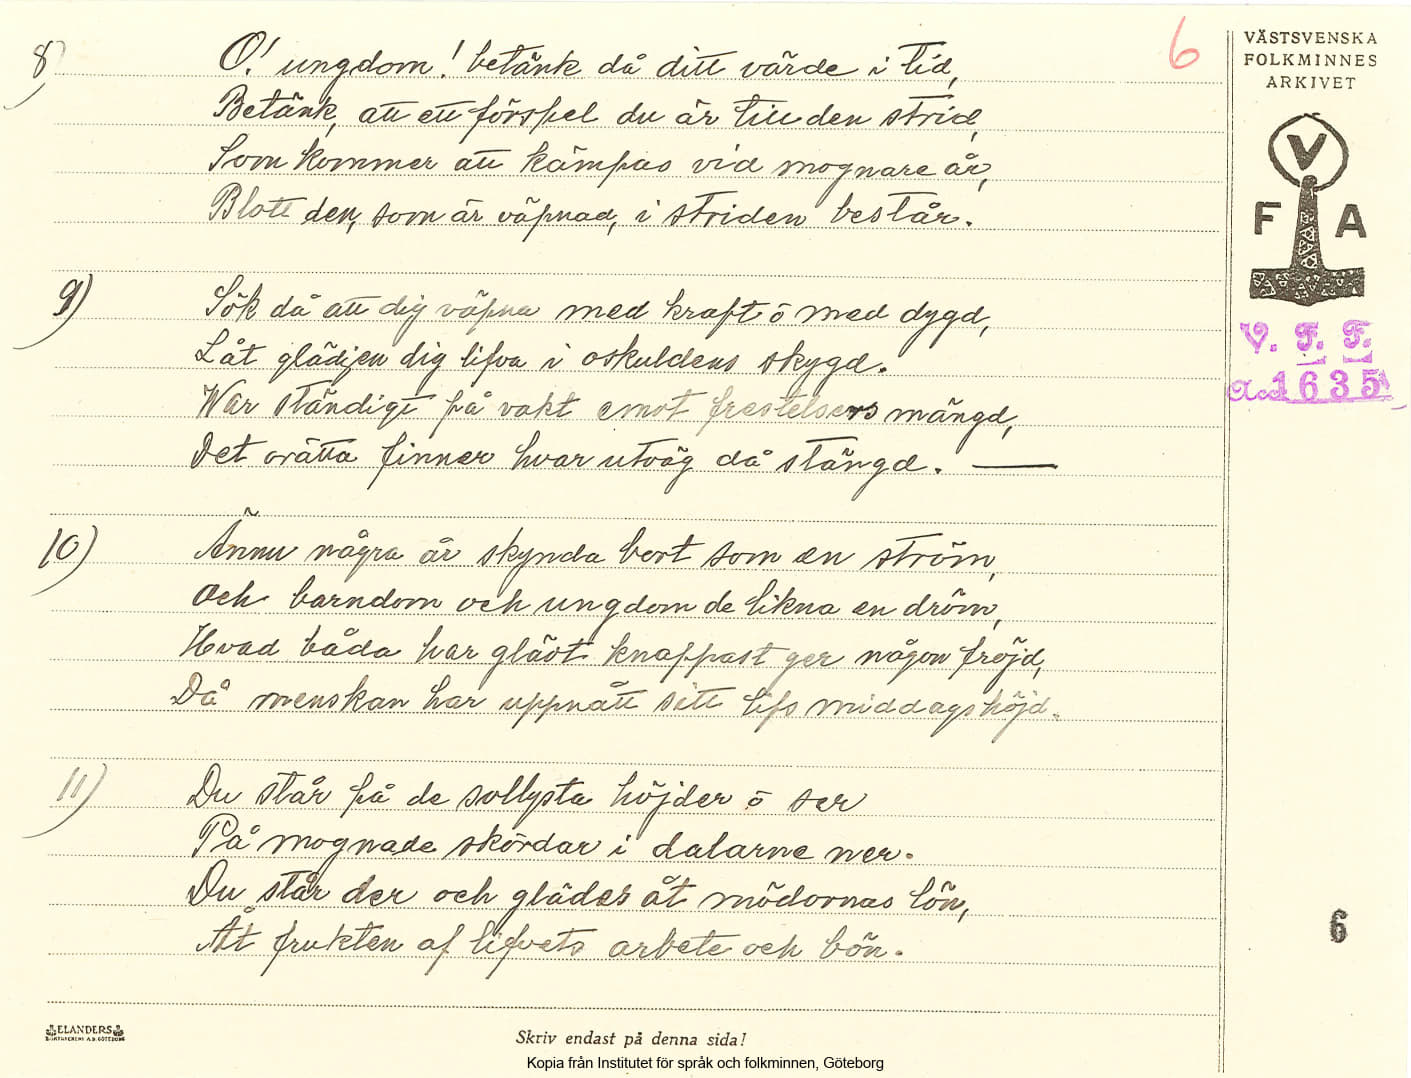 6
VÄSTSVENSKA
FOLKMINNES
ARKIVET
V
F A
V. F. F.
Acc. 1635
8) O! ungdom! betänk då ditt värde i tid,
Betänk, att ett förspel du är till den strid,
Som kommer att kämpas vid mognare år,
Blott den, som är väpnad, i striden består.
9) Sök då att dig väpna med kraft o med dygd,
Låt glädjen dig lifva i oskuldens skygd.
War ständigt på vakt emot frestelsers mängd,
Det orätta finner hvar utväg då stängd. —
10) Ännu några år skynda bort som en ström,
Och barndom och ungdom de likna en dröm,
Hvad båda har glädt knappast ger någon fröjd,
Då menskan har uppnått sitt lifs middagshöjd.
11) Du står på de sollysta höjder o ser
På mognade skördar i dalarne ner.
Du står der och glädes åt mödornas lön,
Åt frukten af lifvets arbete och bön.
6
ELANDERS
BOKTRYCKERI A.B. GÖTEBORG
Skriv endast på denna sida!
Kopia från Institutet för språk och folkminnen, Göteborg